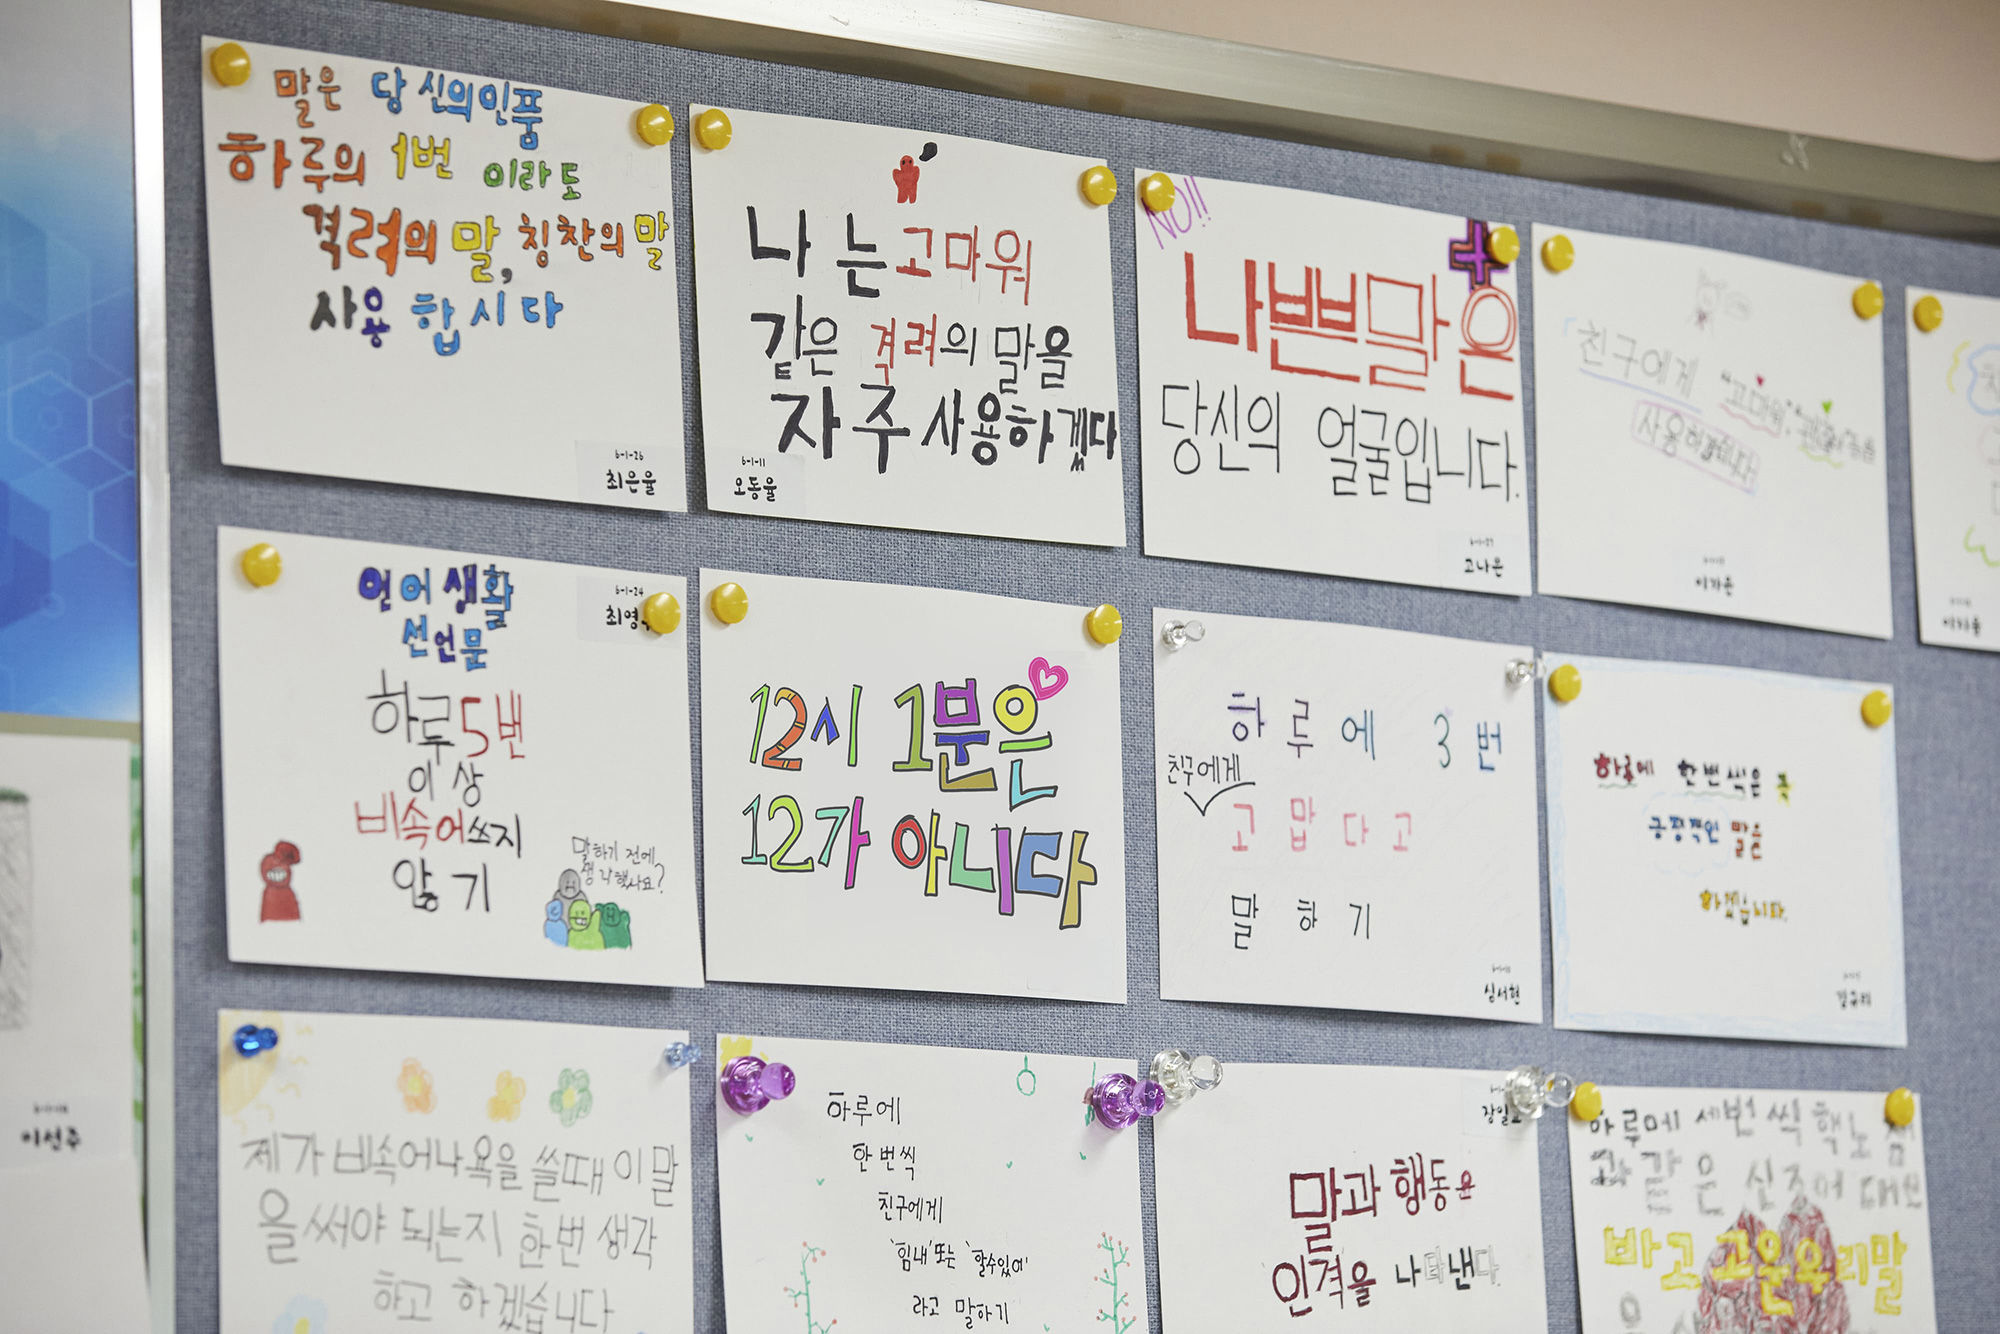 말은 당신의인품
하루의 1번 이라도
격려의 말, 칭찬의 말
사용 합시다
6-1-26
최은율
나는 고마워
같은 격려의 말을
자주 사용하겠다
6-1-11
오동율
NO!!
나쁜말은
당신의 얼굴입니다.
6-1-27
고나은
친구에게 "고마워",
사용하겠습니다
이가은
언어생활
선언문
6-1-24
최영
하루 5번
이상
비속어쓰지
않기
말하기 전에
생각했나요?
12시 1분은
12가 아니다
하루에 3번
친구에게
고맙다고
말하기
심서현
하루에 한번씩은 꼭
긍정적인 말을
하겠습니다.
김규리
이선주
제가 비속어나 욕을 쓸때 이 말
을 써야 되는지 한번 생각
하고 하겠습니다
하루에
한번씩
친구에게
'힘내' 또는 '할수있어'
라고 말하기
장일
말과 행동은
인격을 나타낸다.
하루에 세번씩
바고 고운 우리말